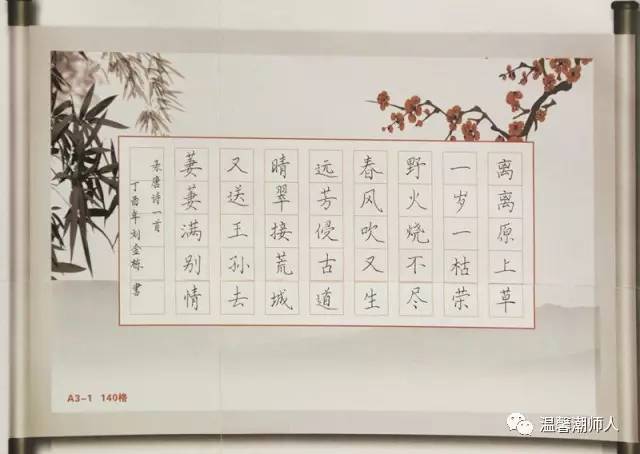 离离原上草
一岁一枯荣
野火烧不尽
春风吹又生
远芳侵古道
晴翠接荒城
又送王孙去
萋萋满别情
录唐诗一首
丁酉年刘金栋书
A3-1 140格
温馨潮师人